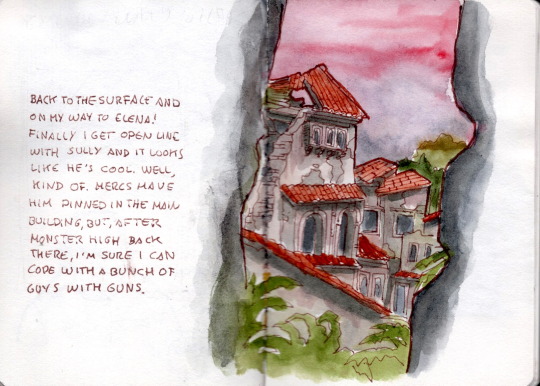 BACK TO THE SURFACE AND
ON MY WAY TO ELENA!
FINALLY I GET OPEN LINE
WITH SULLY AND IT LOOKS
LIKE HE'S COOL. WELL,
KIND OF. MERCS HAVE
HIM PINNED IN THE MAIN
BUILDING, BUT, AFTER
MONSTER HIGH BACK
THERE, I'M SURE I CAN
COPE WITH A BUNCH OF
GUYS WITH GUNS.